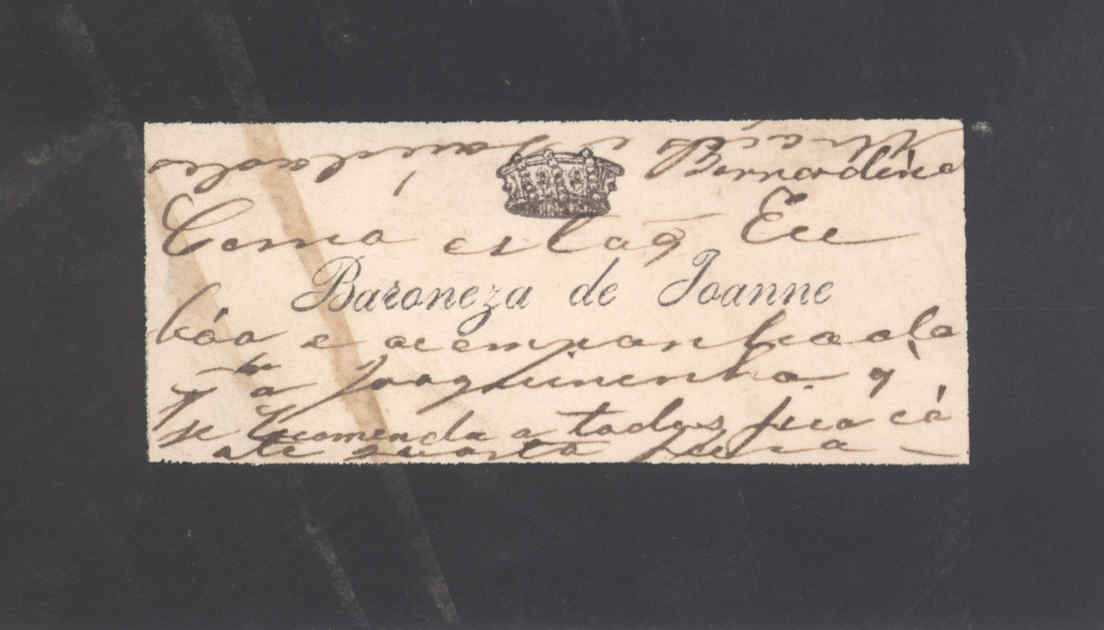 Bernardina
Como estaõ Eu
Baroneza de Joanne
bôa e acompanhada
pla Joaquininha q
se recomenda a todos fica cá
até quarta feira